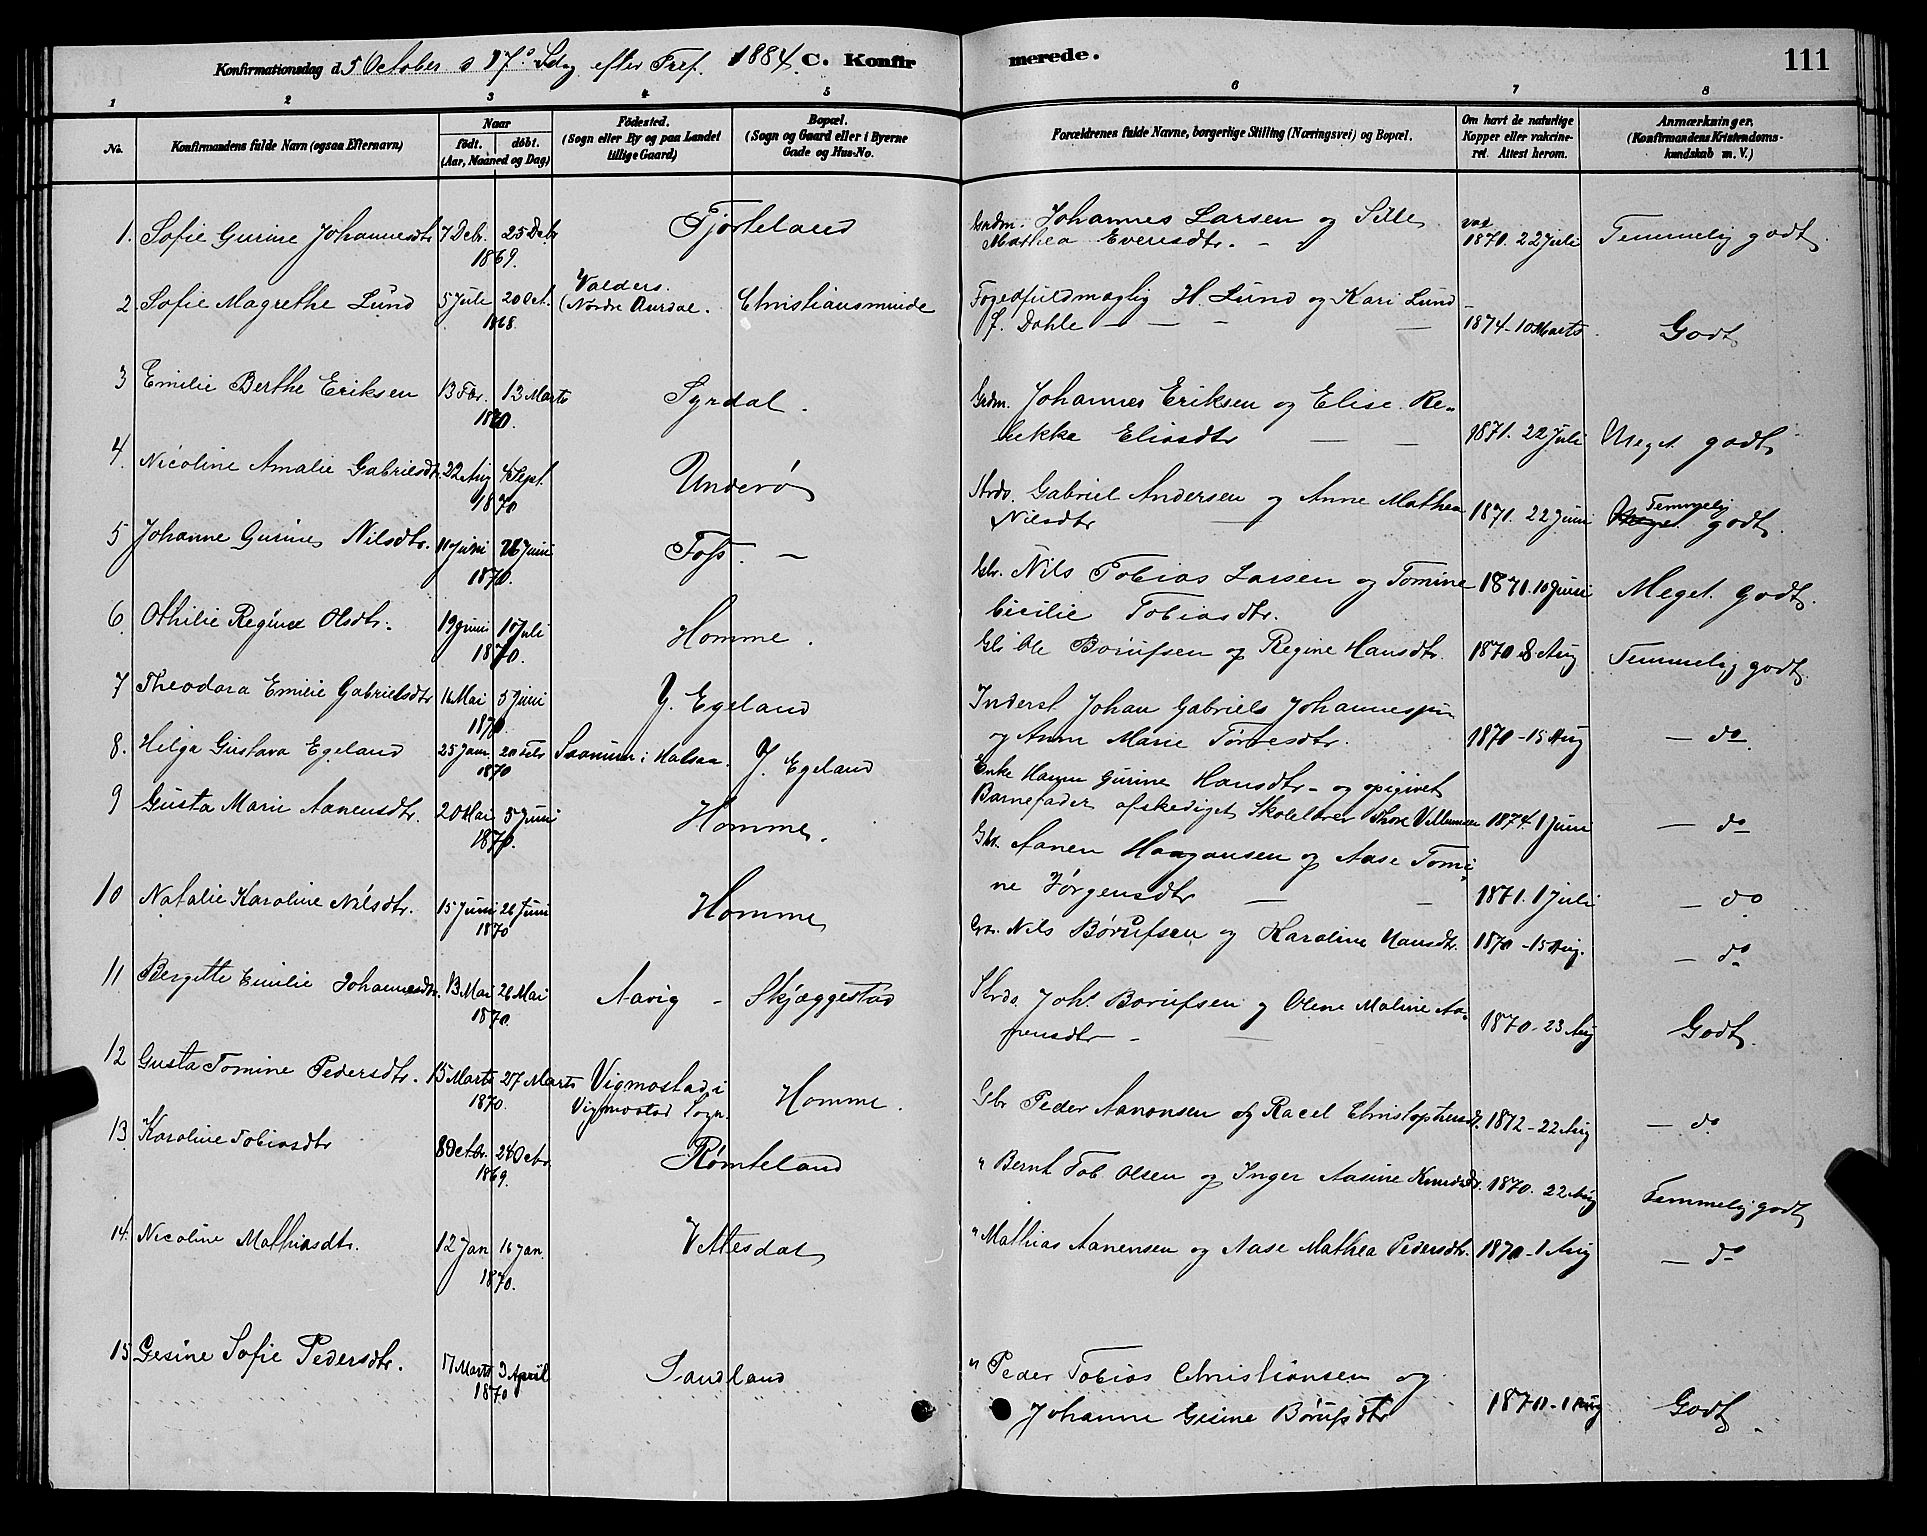 Konfirmationsdag d. 5 October s 17de Sdag efter Tref. 1884. C. Konfirmerede. 111
1 2 3 4 5 6 7 8
No. Konfirmandens fulde Navn (ogsaa Efternavn) Naar født. døbt. (Aar, Maaned og Dag) Fødested. (Sogn eller By og paa Landet tillige Gaard) Bopæl. (Sogn og Gaard eller i Byerne Gade og Hus-No. Forældrenes fulde Navne, borgerlige Stilling (Næringsvei) og Bopæl. Om havt de naturlige Kopper eller vakcineret. Attest herom. Anmærkninger. (Konfirmandens Kristendomskundskab m. V.)
1. Sofie Gurine Johannesdtr 7 Debr. 25 Debr 1869. Fjorteland Grdm. Johannes Larsen og Sille Mathea Evensdtr. - vac 1870. 22 Juli Temmelig godt.
2. Sofie Magrethe Lund 5 Juli 20 Oct. 1868. Valders. (Nordre Aurdal. Christiansminde Fogedfuldmægtig H. Lund og Kari Lund f. Dahle - 1874 - 10 Marts Godt
3 Emilie Berthe Eriksen 13 Febr. 13 Marts 1870. Syrdal. Grdm. Johannes Eriksen og Elise Rebekke Eliasdtr - 1871. 22 Juli Meget godt
4. Nicoline Amalie Gabrielsdtr. 22 Aug 4 Sept. 1870 Underø Strds. Gabriel Andersen og Anne Mathea Nilsdtr 1871. 22 Juni Temmelig godt.
5 Johanne Gurine Nilsdtr. 11 Juni 26 Juni 1870. Foss. - Gbr. Nils Tobias Larsen og Tomine Cecilie Tobiasdtr. 1871. 10 Juni Meget godt.
6. Othilie Regine Olsdtr. 19 Juni 10 Juli 1870. Homme. Gbr Ole Børufsen og Regine Hansdtr. 1870 8 Aug Temmelig godt.
7 Theodora Emilie Gabrielsdtr 16 Mai 5 Juni 1870. Y. Egeland Inderst Johan Gabriels Johannessen og Anne Marie Torresdtr. 1870 - 15 Aug - do
8. Helga Gustava Egeland 25 Jan 20 Feb 1870 Saanum i Halsaa. Y. Egeland Enke Hanne Gurine Hansdtr - og opgivet Barnefader afskediget Skolelærer Thore Vellumsen 1874. 1 Juni - do
9 Gusta Marie Aanensdtr. 20 Mai 5 Juni 1870. Homme. Gbr. Aanen Haagansen og Aase Tomine Jørgensdtr - 1871. 1 Juli - do
10 Natalie Karoline Nilsdtr. 15 Juni 26 Juni 1870 Homme Gbr. Nils Børufsen og Karoline Hansdtr. 1870 - 15 Aug. - do
11 Bergitte Emilie Johannesdtr. 13 Mai 26 Mai 1870. Aavig - Skjæggestad Strds. Johs Børufsen og Olene Maline Aanensdtr - 1870 - 23 Aug Godt.
12 Gusta Tomine Pedersdtr. 15 Marts 27 Marts 1870. Vigmostad i Vigmostad Sogn. Homme. Gbr Peder Aanonsen og Racel Christophersdt. 1872 - 22 Aug - do
13. Karoline Tobiasdtr 8 Octbr. 24 Octbr. 1869. Rømteland " Bernt Tob. Olsen og Inger Aasine Knudsdtr. 1870. 22 Aug Temmelig godt
14. Nicoline Mathiasdtr. 12 Jan 16 Jan. 1870. Vittesdal " Mathias Aanensen og Aase Mathea Pedersdtr. 1870 - 1 Aug - do
15 Gesine Sofie Pedersdtr. 17 Marts 3 April 1870 Sandland " Peder Tobias Christiansen og Johanne Gesine Børufsdtr 1870 - 1 Aug Godt.